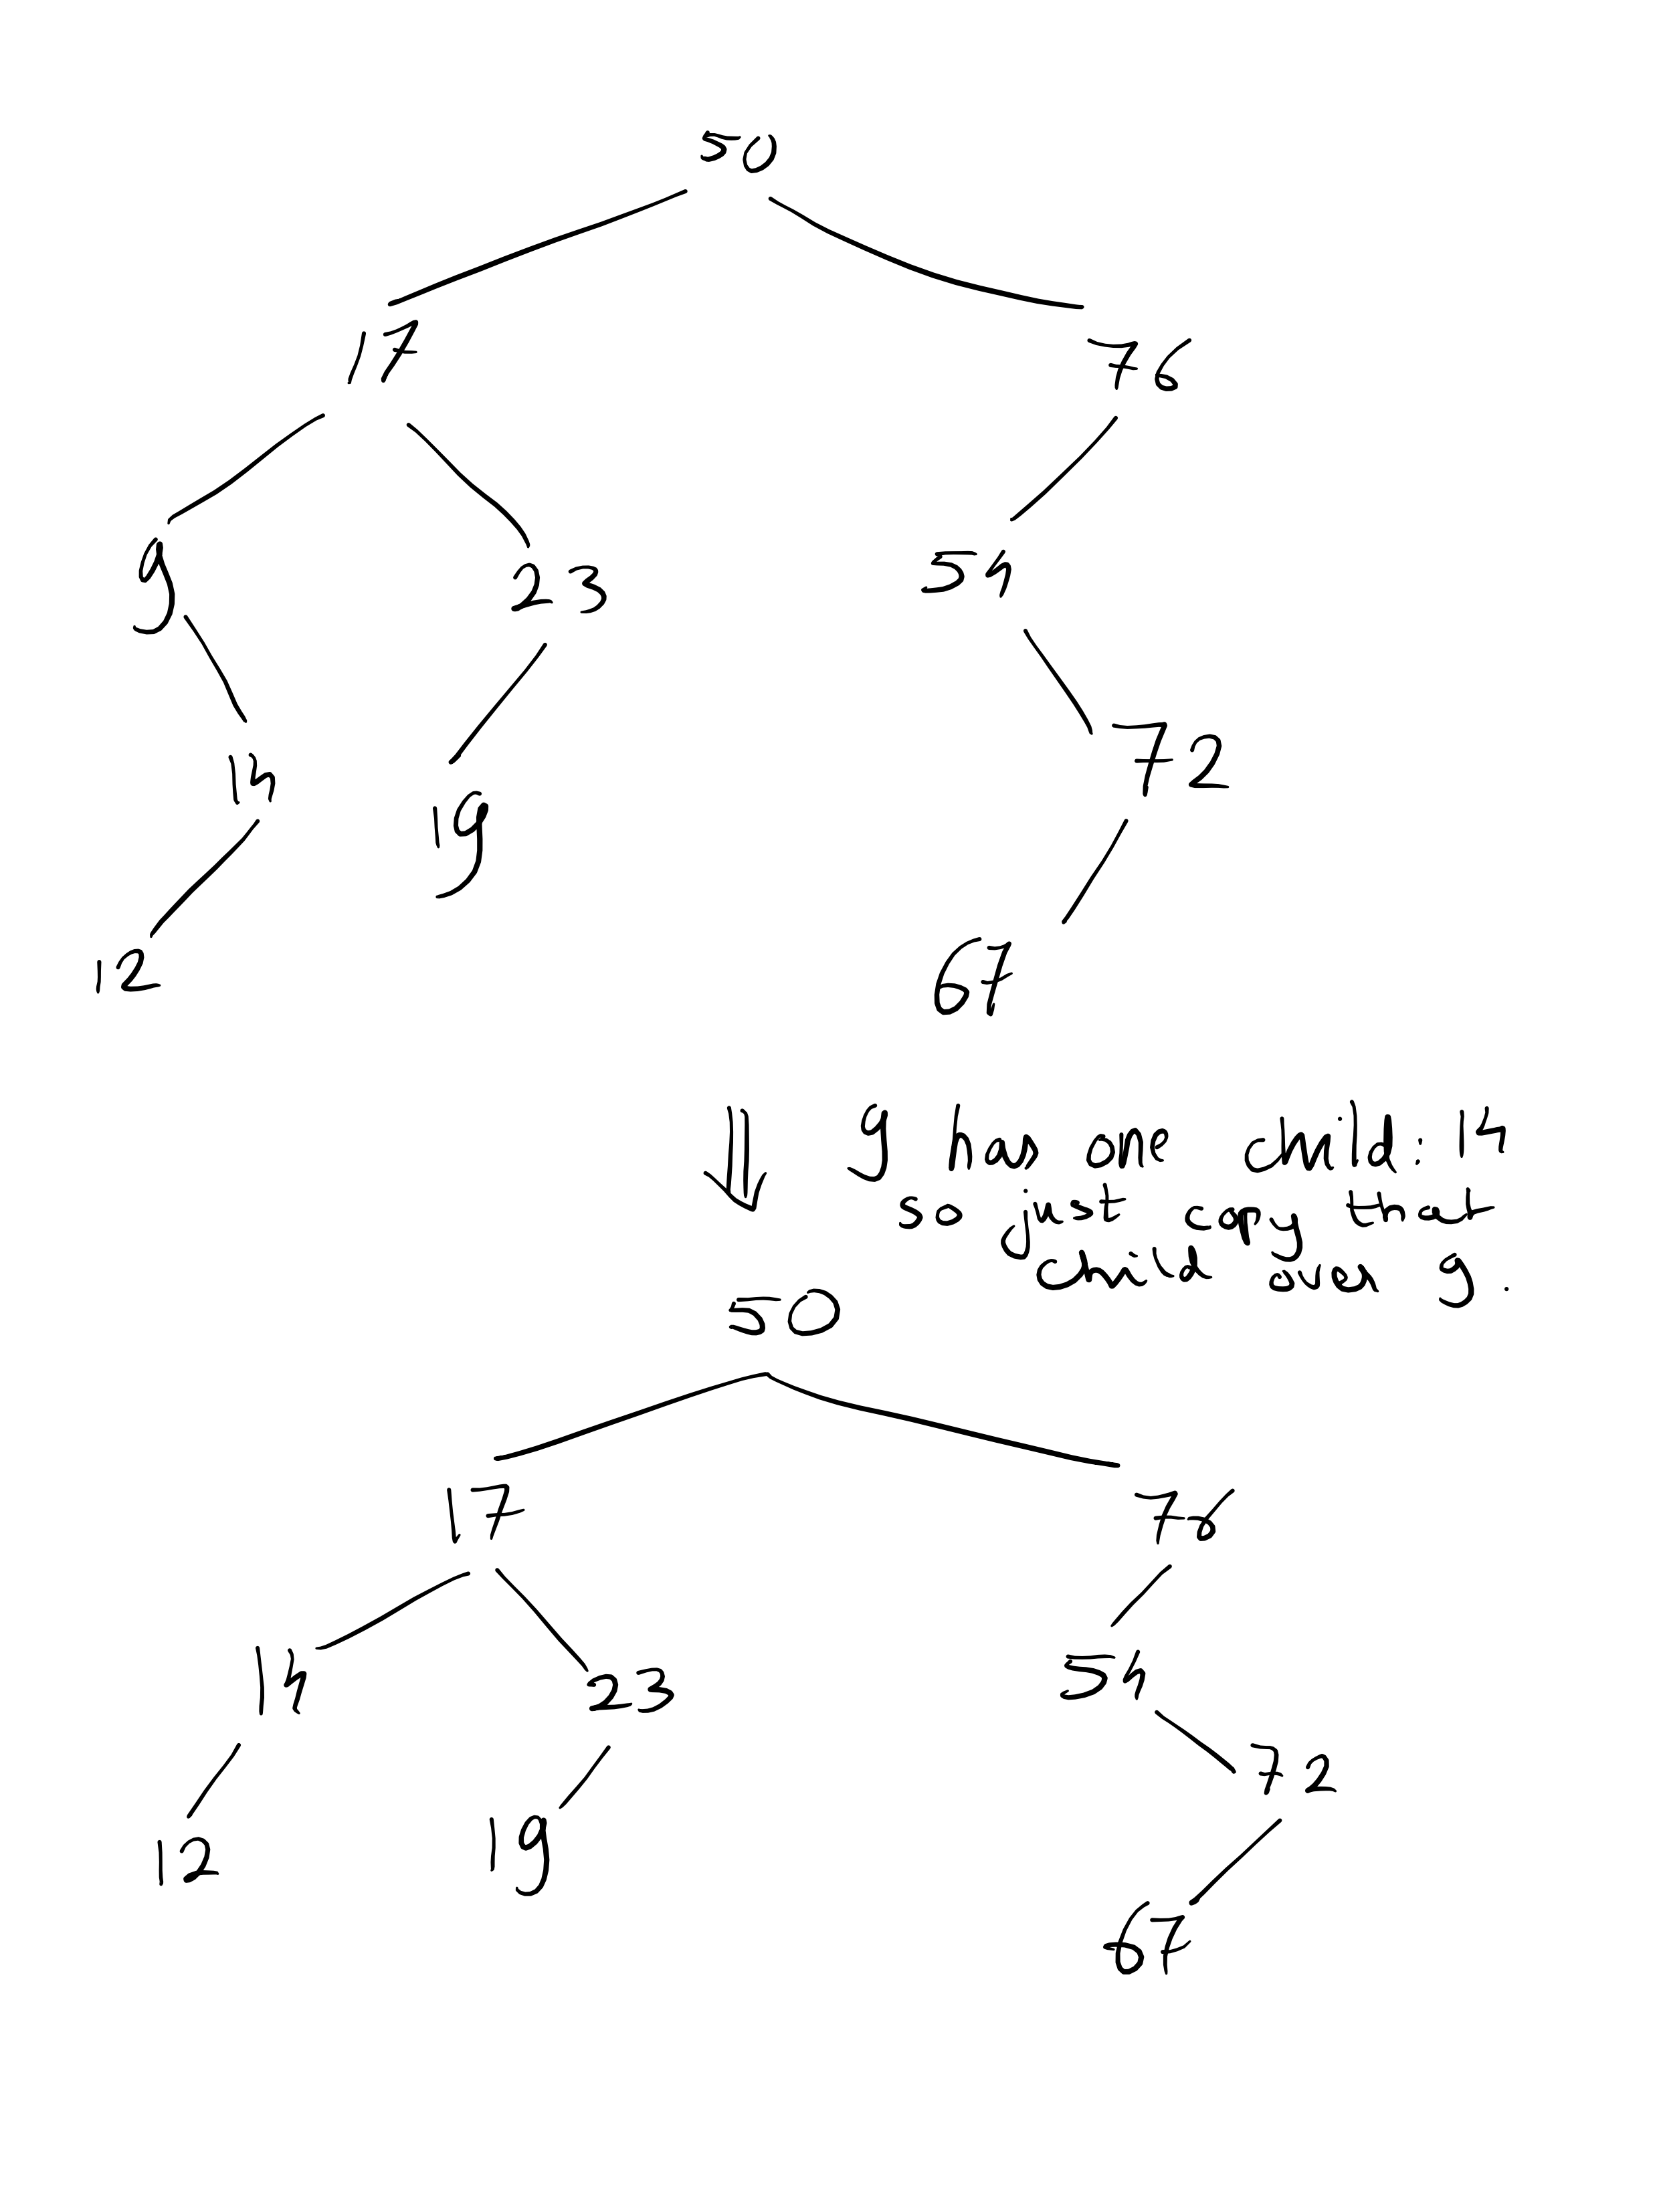 50
17 76
9 23 54
14 72
19
12 67
9 has one child: 14
so just copy that
child over 9.
50
17 76
14 23 54
72
12 19
67